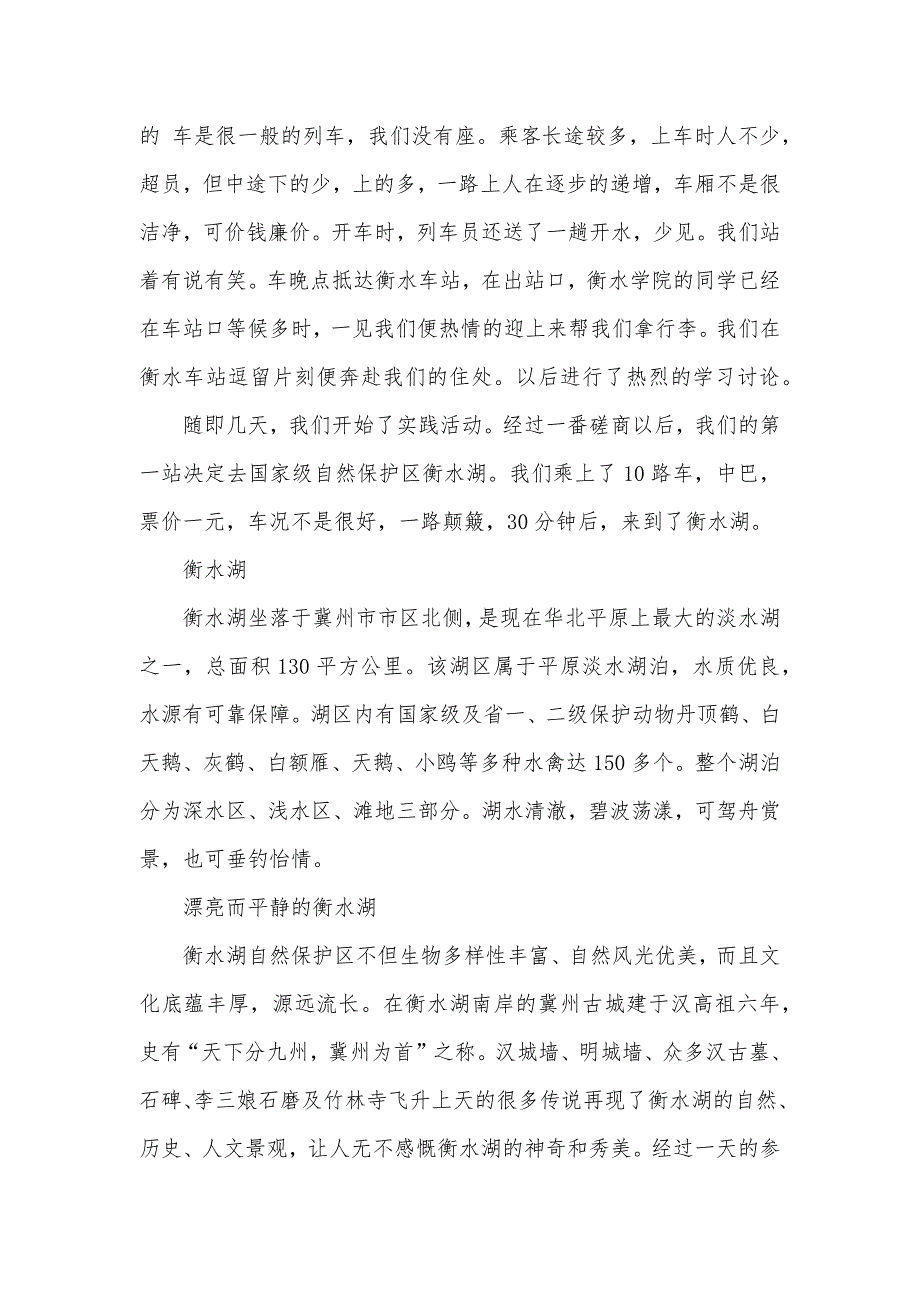 的 车是很一般的列车，我们没有座。乘客长途较多，上车时人不少，
超员，但中途下的少，上的多，一路上人在逐步的递增，车厢不是很
洁净，可价钱廉价。开车时，列车员还送了一趟开水，少见。我们站
着有说有笑。车晚点抵达衡水车站，在出站口，衡水学院的同学已经
在车站口等候多时，一见我们便热情的迎上来帮我们拿行李。我们在
衡水车站逗留片刻便奔赴我们的住处。以后进行了热烈的学习讨论。
随即几天，我们开始了实践活动。经过一番磋商以后，我们的第
一站决定去国家级自然保护区衡水湖。我们乘上了 10 路车，中巴，
票价一元，车况不是很好，一路颠簸，30 分钟后，来到了衡水湖。
衡水湖
衡水湖坐落于冀州市市区北侧，是现在华北平原上最大的淡水湖
之一，总面积 130 平方公里。该湖区属于平原淡水湖泊，水质优良，
水源有可靠保障。湖区内有国家级及省一、二级保护动物丹顶鹤、白
天鹅、灰鹤、白额雁、天鹅、小鸥等多种水禽达 150 多个。整个湖泊
分为深水区、浅水区、滩地三部分。湖水清澈，碧波荡漾，可驾舟赏
景，也可垂钓怡情。
漂亮而平静的衡水湖
衡水湖自然保护区不但生物多样性丰富、自然风光优美，而且文
化底蕴丰厚，源远流长。在衡水湖南岸的冀州古城建于汉高祖六年，
史有“天下分九州，冀州为首”之称。汉城墙、明城墙、众多汉古墓、
石碑、李三娘石磨及竹林寺飞升上天的很多传说再现了衡水湖的自然、
历史、人文景观，让人无不感慨衡水湖的神奇和秀美。经过一天的参